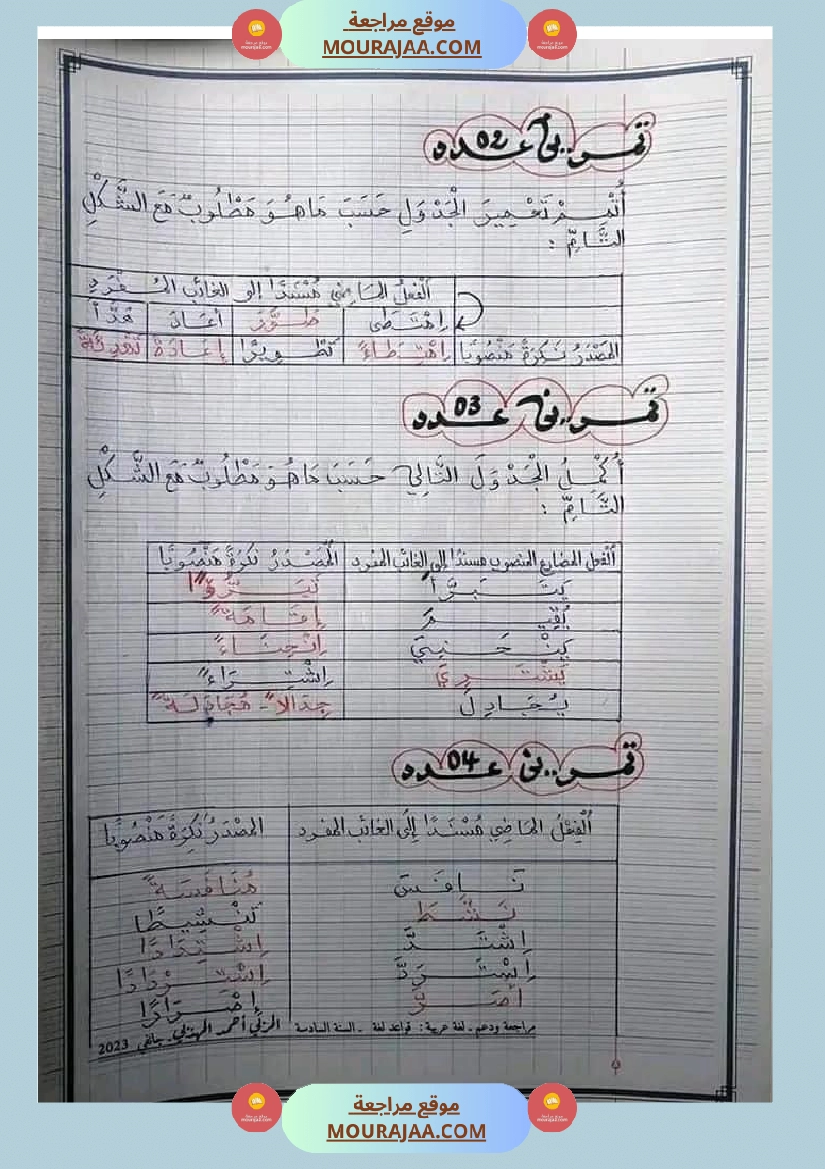 موقع مراجعة
MOURAJAA.COM
تمر..ين عـدد 02
أُتْمِـمْ تَعْمِيرَ الْجَدْوَلِ حَسَبَ مَا هُـوَ مَطْلُوبٌ مَعَ الشَّكْلِ
التَّـامِّ :
الْفِعْلُ المَاضِي مُسْنَدًا إلى الغائب المُفْرَدِ
اِهْتَدَى طَوَّرَ أعَادَ هَدَّأَ
المَصْدَرُ نَكِرَةً مَنْصُوبًا اِهْتِدَاءً تَطْوِيرًا إِعَادَةً تَهْدِئَةً
تمر..ين عـدد 03
أُكْمِلُ الْجَدْوَلَ التَّالِي حَسَبَ مَا هُـوَ مَطْلُوبٌ مَعَ الشَّكْلِ
التَّـامِّ :
الفعل المضارع المنصوب مسندًا إلى الغائب المفرد المَصْدَرُ نَكِرَةً مَنْصُوبًا
يَتَبَرَّأَ تَبَرُّؤًا
يُقِيمَ إِقَامَةً
يَنْحَنِيَ اِنْحِنَاءً
يَشْتَرِيَ اِشْتِرَاءً
يُجَادِلَ جِدَالًا - مُجَادَلَةً
تمر..ين عـدد 04
الْفِعْلُ المَاضِي مُسْنَدًا إِلَى الغائب المفرد المَصْدَرُ نَكِرَةً مَنْصُوبًا
نَـافَسَ مُنَافَسَةً
نَـشَّـطَ تَنْشِيطًا
اِشْتَـدَّ اِشْتِدَادًا
اِسْتَـرَدَّ اِسْتِرْدَادًا
أَصَـرَّ إِصْرَارًا
مراجعة ودعم - لغة عربية: قواعد لغة - السنة السادسة المربّي أحمد المهذبي 2023
موقع مراجعة
MOURAJAA.COM